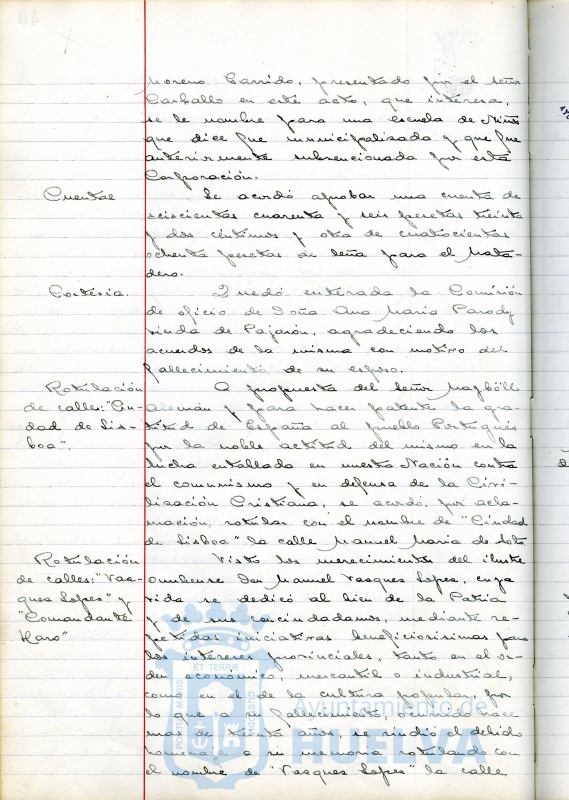 Moreno Garrido, presentado por el señor
Carballo en este acto, que interesa,
se le nombre para una escuela de Niños
que dice fue municipalizada y que fue
anteriormente subvencionada por esta
Corporación.
Cuentas
Se acordó aprobar una cuenta de
seiscientas cuarenta y seis pesetas treinta
y dos céntimos y otra de cuatrocientas
ochenta pesetas de leña para el Mata-
dero.
Cortesia.
Quedó enterada la Comisión
de oficio de Doña Ana Maria Parody
viuda de Pajarón, agradeciendo los
acuerdos de la misma con motivo del
fallecimiento de su esposo.
Rotulación
de calles: "Ciu-
dad de Lis-
boa".
A propuesta del señor
Alemán y para hacer patente la gra-
titud de España al pueblo Portugués
por la noble actitud del mismo en la
lucha entablada en nuestra Nación contra
el comunismo y en defensa de la Civi-
lización Cristiana, se acordó, por acla-
mación, rotular con el nombre de "Ciudad
de Lisboa" la calle Manuel Maria de Soto
Rotulación
de calles: "Vas-
ques Lopes" y
"Comandante
Haro"
Visto los merecimientos del ilustre
onubense Don Manuel Vasques Lopes, cuya
vida se dedicó al bien de la Patria
y de sus conciudadanos, mediante re-
petidas iniciativas beneficiosisimas para
los intereses provinciales, tanto en el or-
den economico, mercantil o industrial,
como en el de la cultura popular, por
lo que a su fallecimiento, ocurrido hace
mas de treinta años, se rindió el debido
homenaje a su memoria rotulando con
el nombre de "Vasques Lopes" la calle
PORTUS MARIS
ET TERRÆ
CUSTODIA
Ayuntamiento de
HUELVA